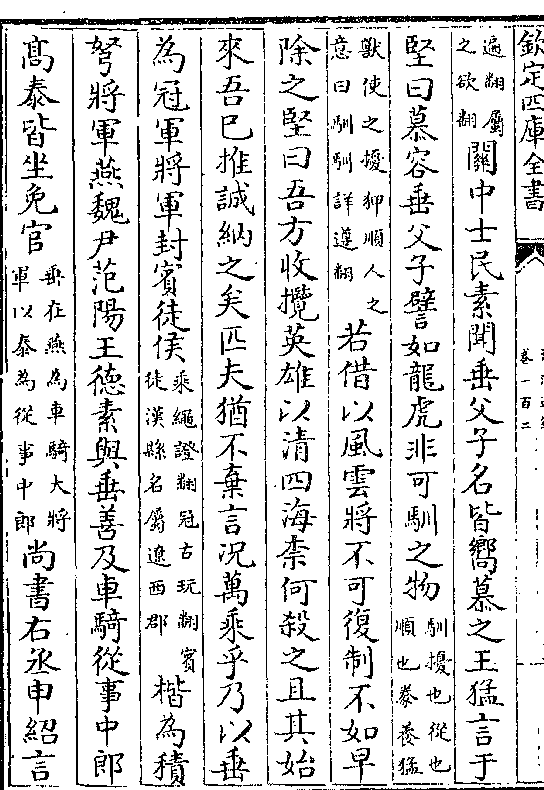 欽定四庫全書
卷一百二
遍翻屬
之欲翻
關中士民素聞垂父子名皆嚮慕之王猛言于
堅曰慕容垂父子譬如龍虎非可馴之物
馴擾也從也
順也豢養猛
獸使之擾狎順人之
意曰馴馴詳遵翻
若借以風雲將不可復制不如早
除之堅曰吾方收攬英雄以清四海柰何殺之且其始
來吾已推誠納之矣匹夫猶不棄言况萬乘乎乃以垂
為冠軍將軍封賓徒侯
乘繩證翻冠古玩翻賓
徒漢縣名屬遼西郡
楷為積
弩將軍燕魏尹范陽王德素與垂善及車騎從事中郎
高泰皆坐免官
垂在燕為車騎大將
軍以泰為從事中郎
尚書右丞申紹言